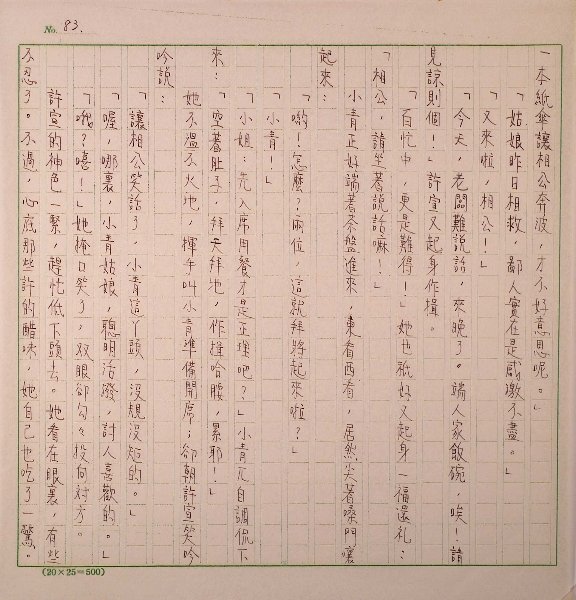 No. 83.
一本紙傘讓相公奔波，才不好意思呢。」
「姑娘昨日相救，鄙人實在是感激不盡。」
「又來啦，相公！」
「今天，老闆難說話，來晚了。端人家飯碗，唉！請
見諒則個！」許宣又起身作揖。
「百忙中，更是難得！」她也祇好又起身一福還礼：
「相公，請坐著說話嘛！」
小青正好端著茶盤進來，東看西看，居然尖著嗓門嚷
起來：
「喲！怎麼？兩位，這就拜將起來啦？」
「小青！」
「小姐：先入席用餐才是正理吧？」小青兀自調侃下
來：「空著肚子，拜天拜地，作揖哈腰，累耶！」
她不溫不火地，揮手叫小青準備開席；卻朝許宣笑吟
吟說：
「讓相公笑話了，小青這丫頭，沒規沒矩的。」
「喔，哪裏，小青姑娘，聰明活潑，討人喜歡的。」
「哦？嘻！」她掩口笑了，双眼卻勾勾投向对方。
許宣的神色一緊，趕忙低下頭去。她看在眼裏，有些
不忍了。不過，心底那些許的醋味，她自己也吃了一驚。
(20×25=500)